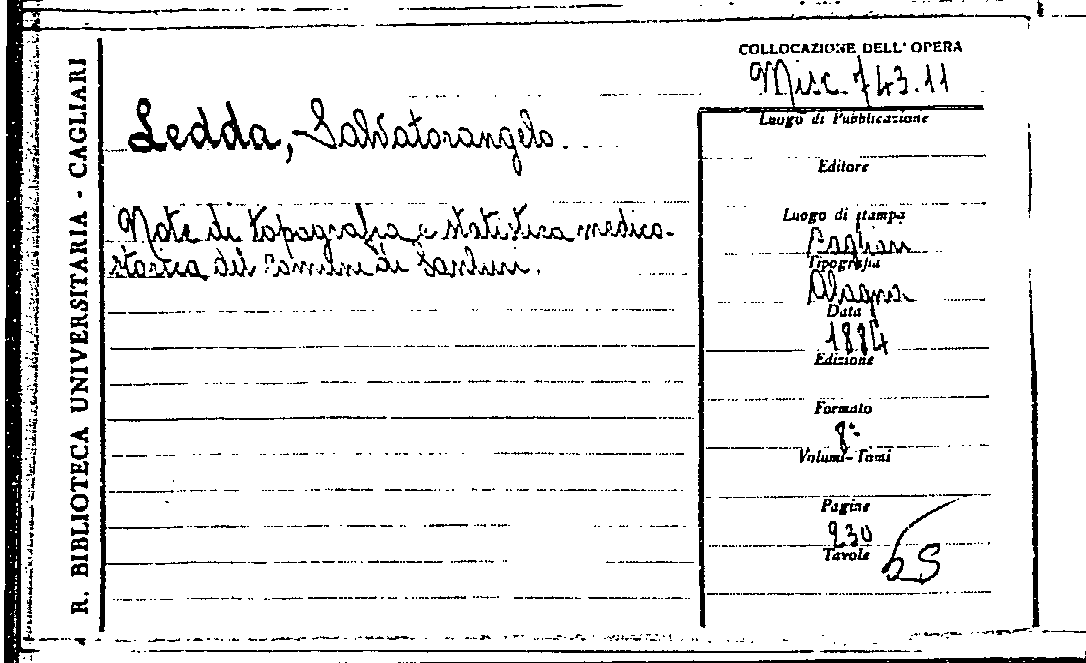 R. BIBLIOTECA UNIVERSITARIA - CAGLIARI
COLLOCAZIONE DELL'OPERA
Misc. 743.11
Ledda, Salvatorangelo.
Note di topografia e statistica medico-
storica del comune di Sanluri.
Luogo di Pubblicazione
Editore
Luogo di stampa
Cagliari
Tipografia
Alagna
Data
1884
Edizione
Formato
8°
Volumi-Tomi
Pagine
230
Tavole